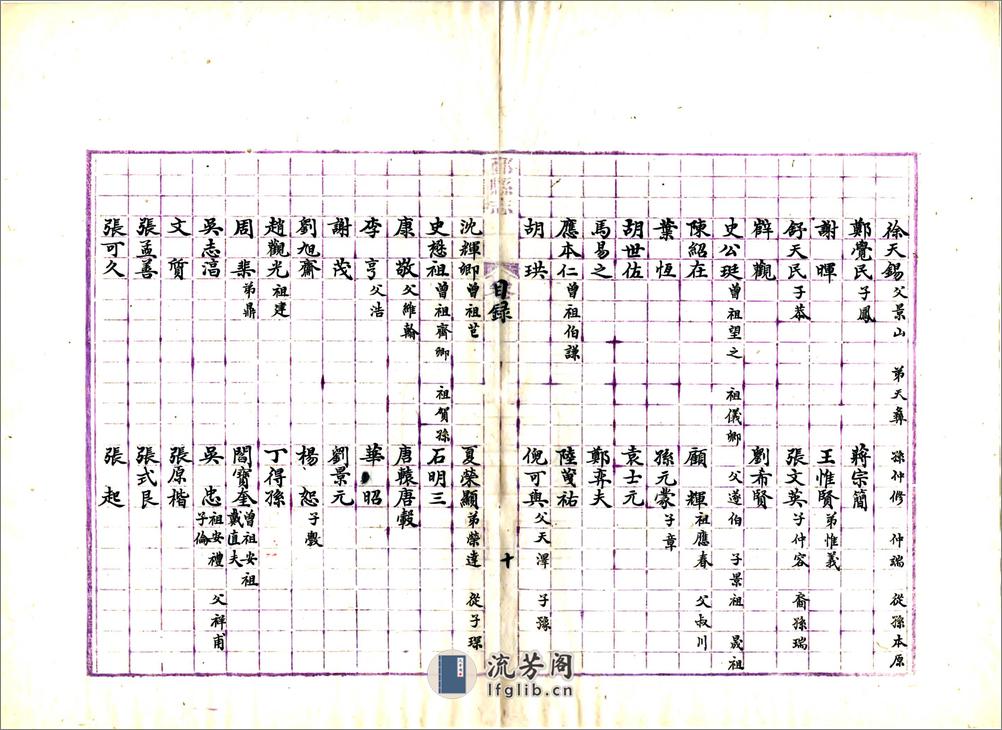 徐天錫父景山 弟天彝 孫仲修 仲端 從孫本原
鄭覺民子鳳 蔣宗簡
謝暉 王惟賢弟惟義
舒天民子恭 張文英子仲容 裔孫瑞
觀 劉希賢
史公珽曾祖望之 祖儀卿 父遵伯 子景祖 晟祖
陳紹在 顧輝祖應春 父叔川
葉恆 孫元蒙子章
胡世佐 袁士元
馬易之 鄭弈夫
應本仁曾祖伯謙 陸祐
胡珙 倪可與父天澤 子豫
鄞縣志
目錄
十
沈輝卿曾祖芑 夏榮顯弟榮達 從子琛
史懋祖曾祖齊卿 祖賀孫 石明三
康敬父維翰 唐轅唐轂
李亨父浩 華昭
謝茂 劉景元
劉旭齋 楊恕子轂
趙觀光祖建 丁得孫
周棐弟鼎 閻寶奎曾祖安祖 戴直夫
吳志淯 吳忠祖安禮 子倫 父祥甫
文質 張原楷
張孟善 張式艮
張可久 張起
流芳阁
lfglib.cn